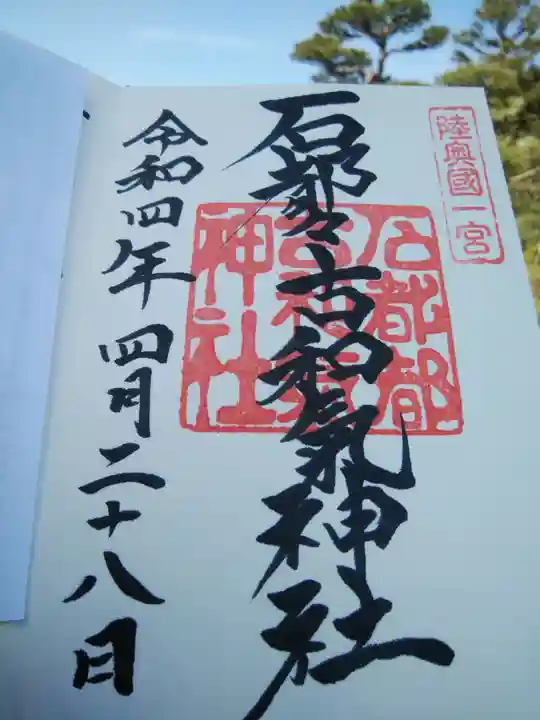 陸奥國一宮
石都々古和氣神社
石都都
古和氣
神社
令和四年四月二十八日